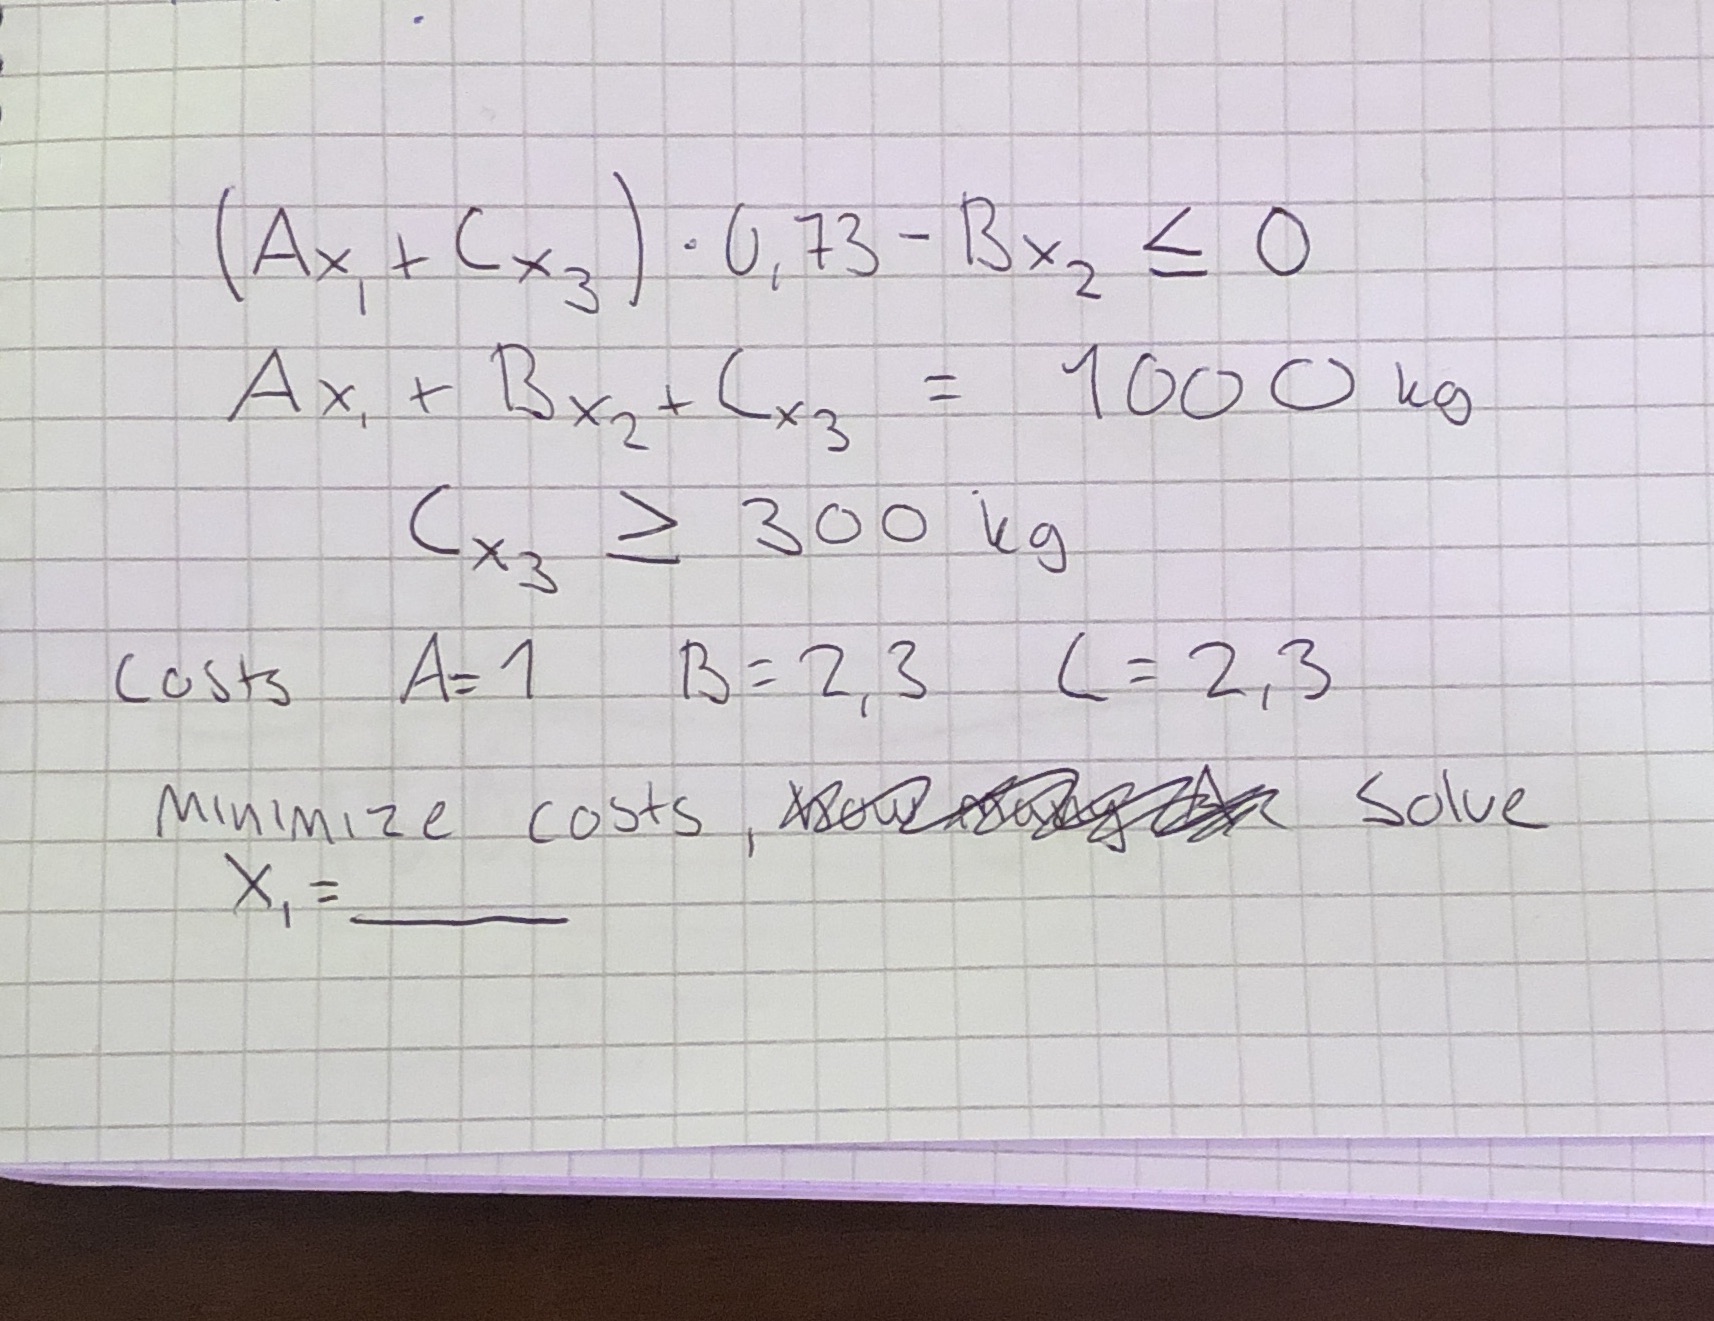 (Ax₁ + Cx₃) · 0,73 - Bx₂ ≤ 0
Ax₁ + Bx₂ + Cx₃ = 1000 kg
Cx₃ ≥ 300 kg
Costs A=1 B=2,3 C=2,3
Minimize costs, Solve
X₁ = ____